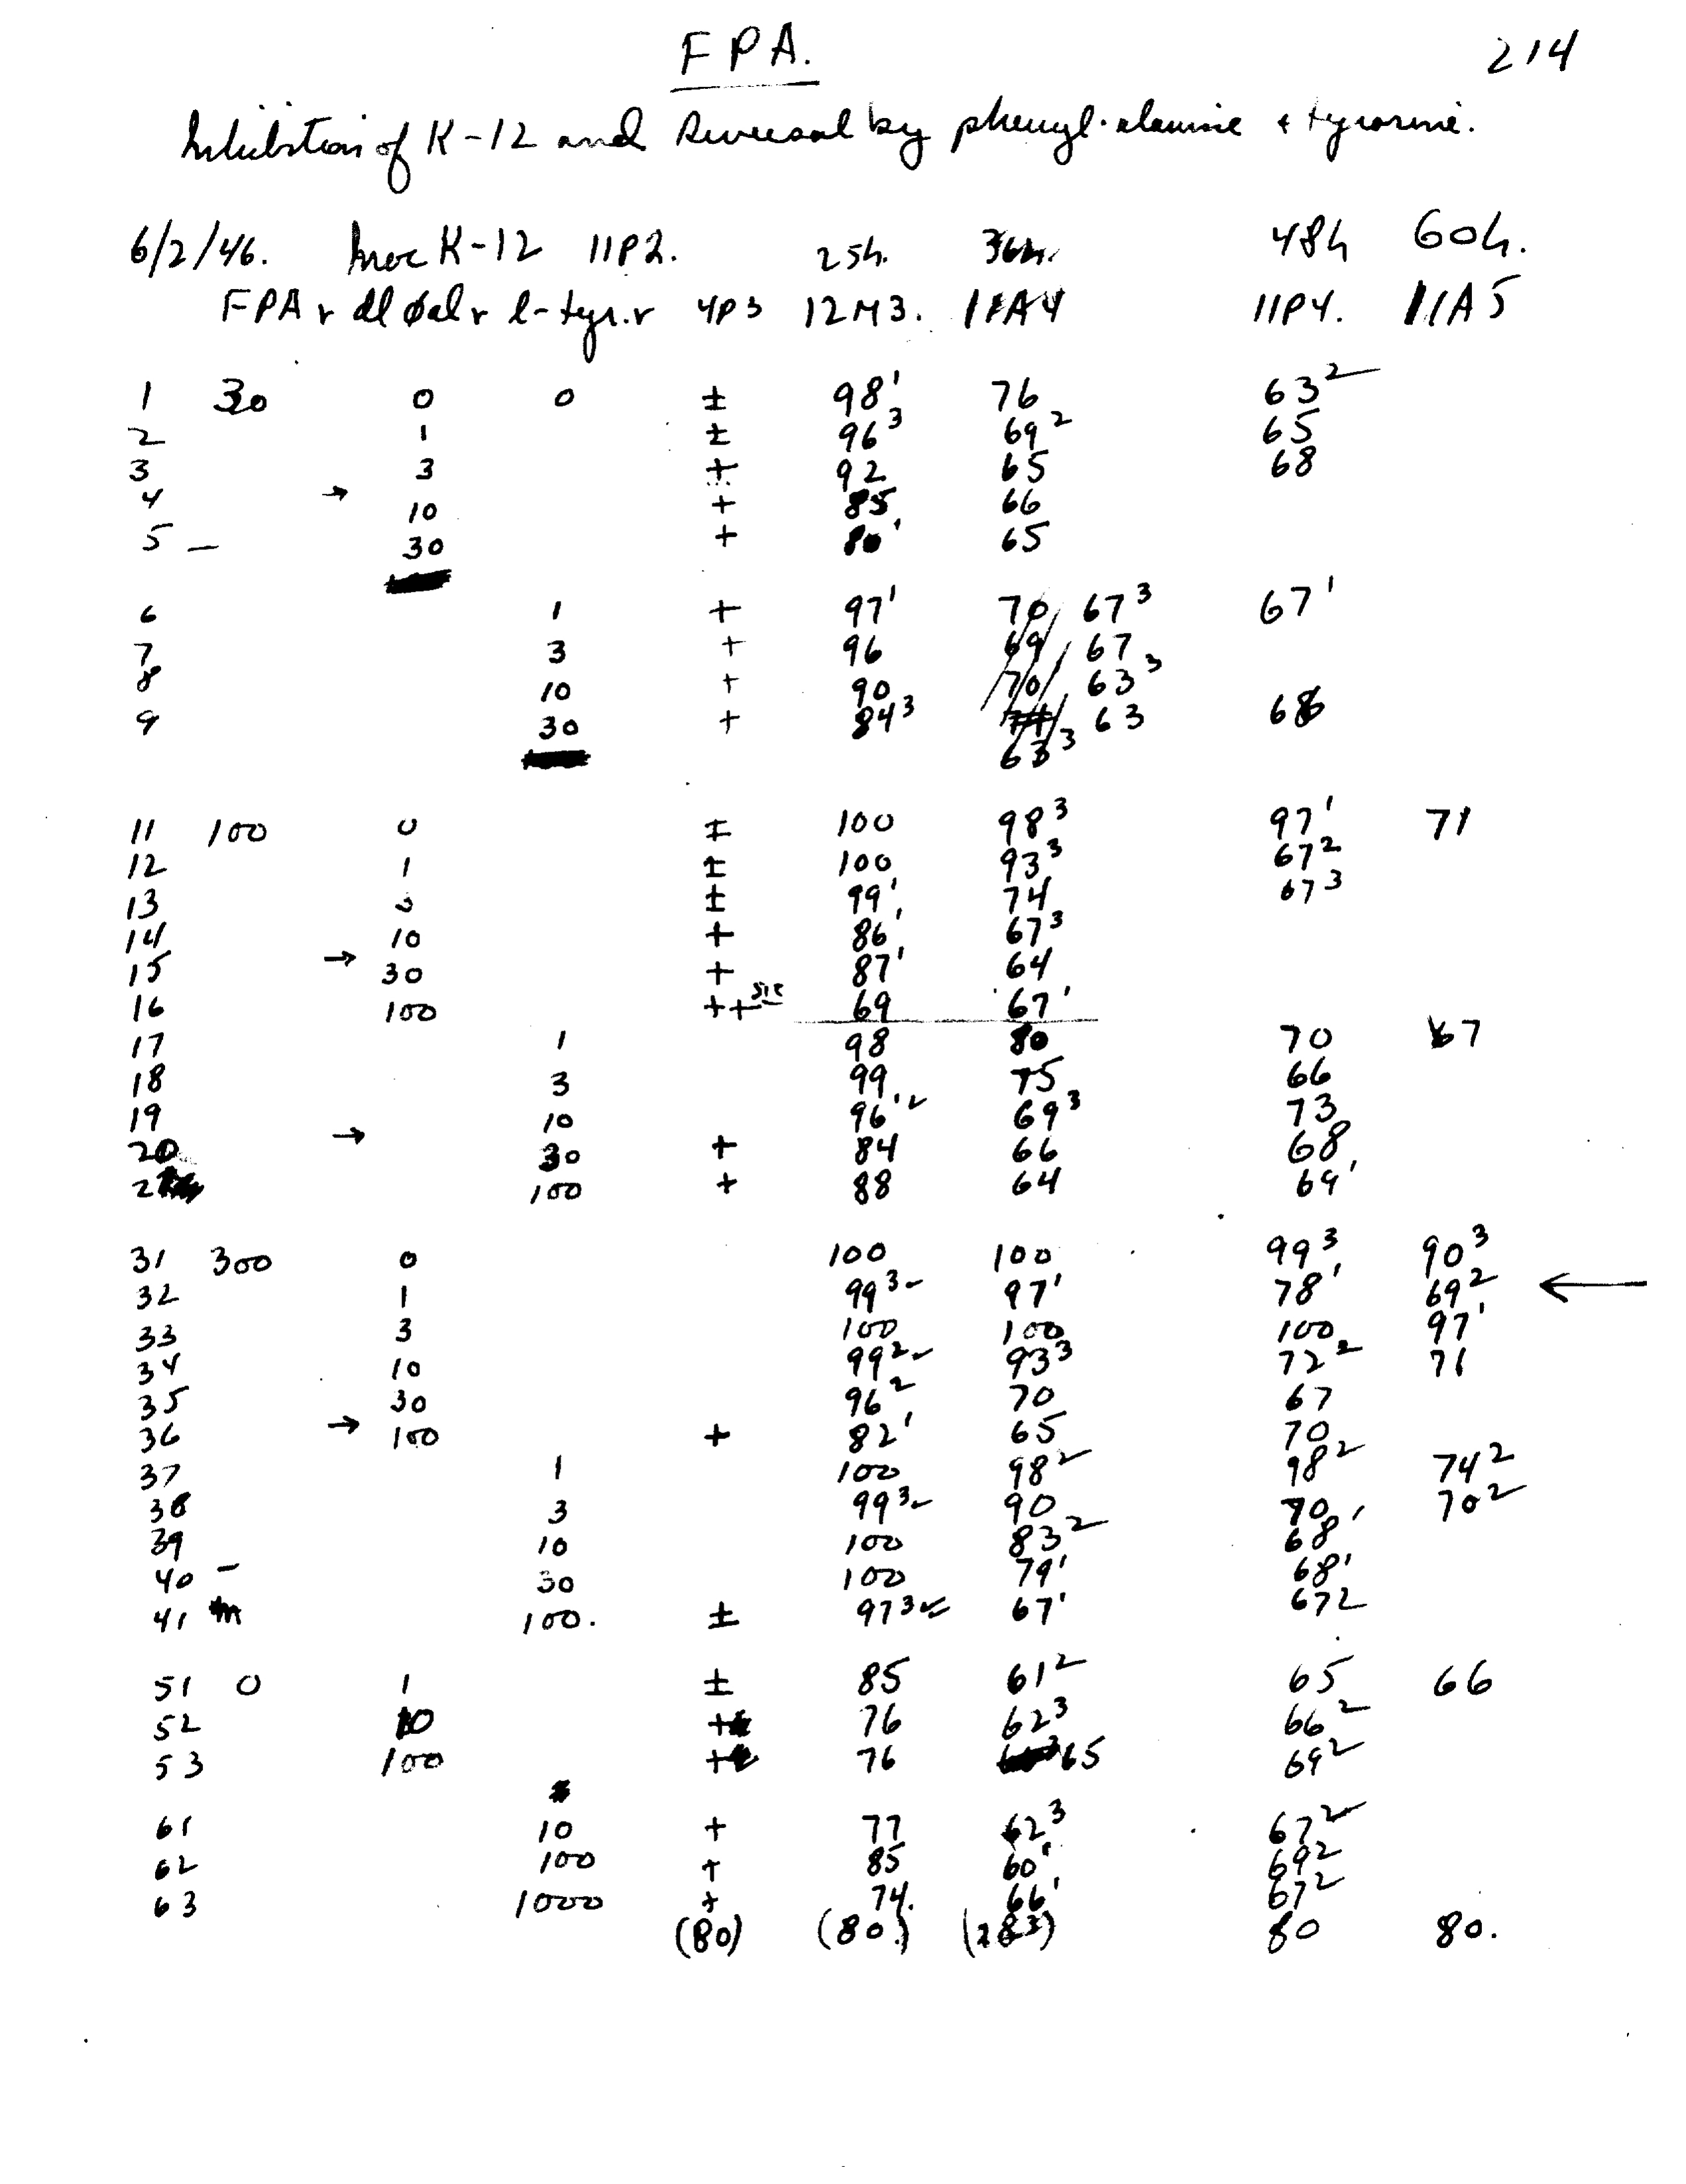 FPA.
214
Inhibition of K-12 and Reversal by phenyl-alanine + tyrosine.
6/2/46. Inoc K-12 11P2. 25h. 36h. 48h 60h.
FPA γ dl φal γ l-tyr. γ 4P3 12M3. 11A4 11P4. 11A5
1 30 0 0 ± 98¹ 76 63²
2 1 ± 96³ 69² 65
3 3 + 92 65 68
4 → 10 + 85 66
5 – 30 + 80¹ 65
6 1 + 97¹ 70 67³ 67¹
7 3 + 96 69 67
8 10 + 90 70 63³
9 30 + 84³ 63 68
63³
11 100 0 ± 100 98³ 97¹ 71
12 1 ± 100 93³ 67²
13 3 ± 99¹ 74 67³
14 10 + 86¹ 67³
15 → 30 + 87¹ 64
16 100 ++ sic 69 67¹
17 1 98 80 70 67
18 3 99 75 66
19 10 96¹ ✓ 69³ 73
20 → 30 + 84 66 68
2 100 + 88 64 69¹
31 300 0 100 100 99³ 90³
32 1 99³ ✓ 97¹ 78¹ 69² ←
33 3 100 100 100 97¹
34 10 99² ✓ 93³ 72² 71
35 30 96² 70 67
36 → 100 + 82¹ 65 70
37 1 100 98² 98² 74²
38 3 99³ ✓ 90 70 70²
39 10 100 83² 68¹
40 – 30 100 79¹ 68¹
41 100. ± 97³ ✓ 67¹ 67²
51 0 1 ± 85 61² 65 66
52 10 + 76 62³ 66²
53 100 + 76 65 69²
61 10 + 77 62³ 67²
62 100 + 85 60¹ 69²
63 1000 + 74. 66¹ 67²
(80) (80.) (283) 80 80.